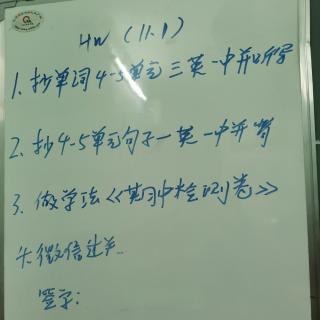 HW (11.1)
1. 抄单词4-5单元三英一中并听写
2. 抄4-5单元句子一英一中并背
3. 做学法《期中检测卷》
4. 微信过关
签字: